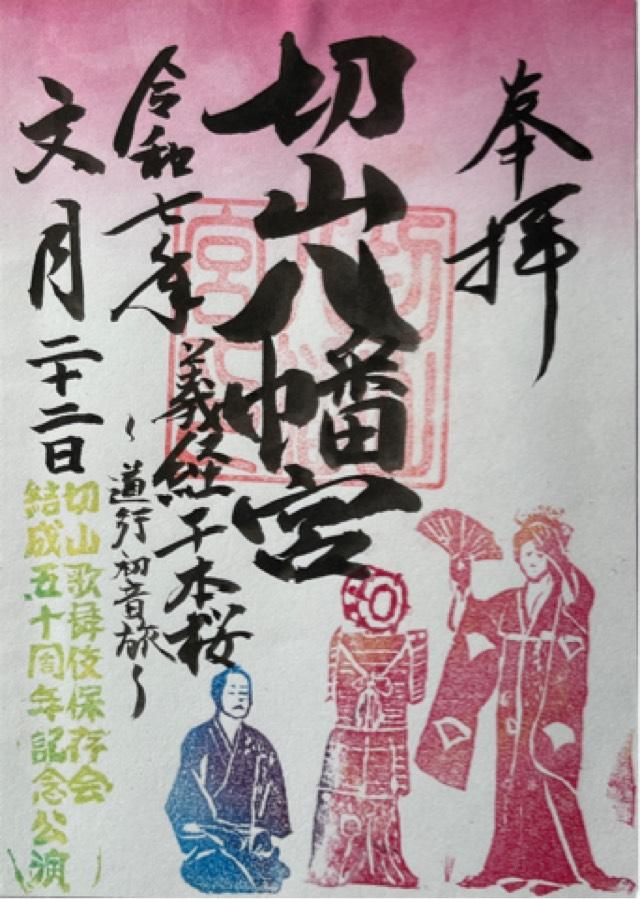 奉拝
切山八幡宮
義経千本桜
~道行初音旅~
令和七年
文月二十二日
切山歌舞伎保存会
結成五十周年記念公演